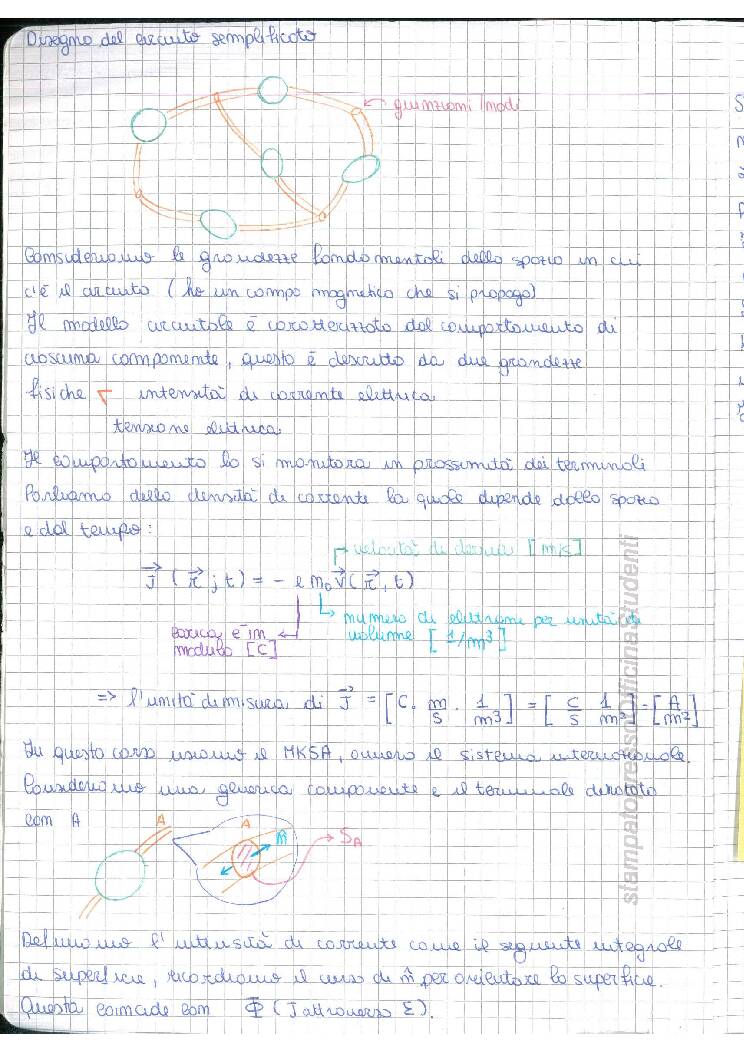 Disegno del circuito semplificato
giunzioni / nodi
Consideriamo le grandezze fondamentali dello spazio in cui
c'è il circuito (ho un campo magnetico che si propaga)
Il modello circuitale è caratterizzato dal comportamento di
ciascuna componente, questo è descritto da due grandezze
fisiche intensità di corrente elettrica
tensione elettrica
Il comportamento lo si monitora in prossimità dei terminali
Parliamo della densità di corrente la quale dipende dallo spazio
e dal tempo:
velocità di deriva [m/s]
J⃗ (r⃗ ; t) = - e n₀ v⃗ (r⃗, t)
numero di elettroni per unità di
volume [1/m³]
carica e⁻ in
modulo [C]
=> l'unità di misura di J⃗ = [C · m/s · 1/m³] = [C/s 1/m²] = [A/m²]
In questo corso usiamo il MKSA, ovvero il sistema internazionale.
Consideriamo una generica componente e il terminale denotato
con A
A
A
n̂
S_A
Definiamo l'intensità di corrente come il seguente integrale
di superficie, ricordiamo il verso di n̂ per orientare la superficie.
Questa coincide con Φ (J attraverso Σ).
stampatopressoOfficinaStudenti